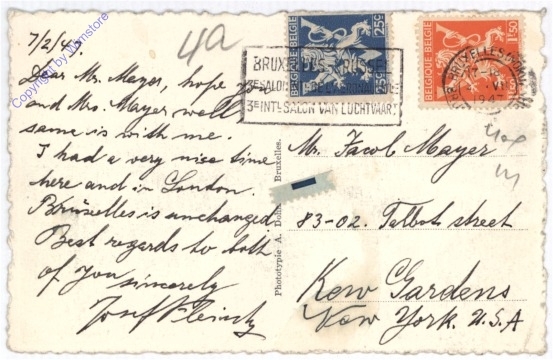 7/2/47
4a
Dear Mr. Mayer, hope you
and Mrs. Mayer well
same is with me.
I had a very nice time
here and in London.
Bruxelles is unchanged
Best regards to both
of you sincerely
Josef
Copyright by Mamstore
Phototypie A. Dohmen, Bruxelles.
BELGIQUE-BELGIE
25c 25c
BELGIQUE-BELGIE
1F50
BRUXELLES
3e SALON
3e INTL SALON VAN LUCHTVAART
BRUXELLES
1947
Mr. Jacob Mayer
83-02. Talbot street
Kew Gardens
New York. U.S.A